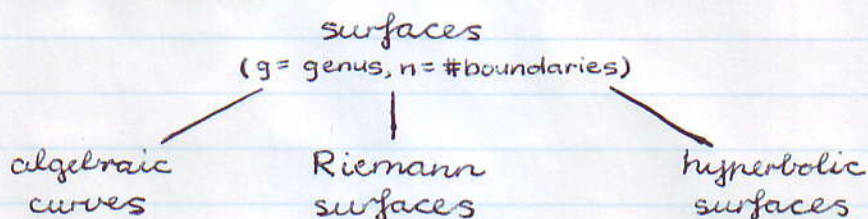 surfaces
(g = genus, n = #boundaries)
algebraic curves
Riemann surfaces
hyperbolic surfaces